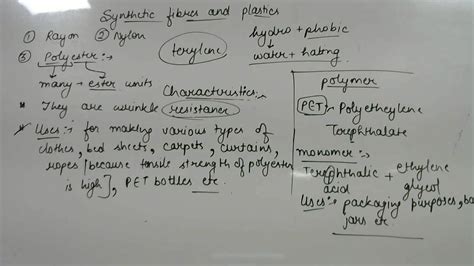 Synthetic fibres and plastics
① Rayon ② Nylon
③ Polyester:→
terylene
hydro + phobic
water + hating
many + ester units
Characteristics:-
* They are wrinkle resistance
* Uses:→ for making various types of
clothes, bed sheets, carpets, curtains,
ropes [because tensile strength of polyester
is high], PET bottles etc.
polymer
PET → Polyethylene
Terephthalate
monomer:→
Terephthalic + ethylene
acid glycol
Uses:→ packaging purposes,
jars etc.